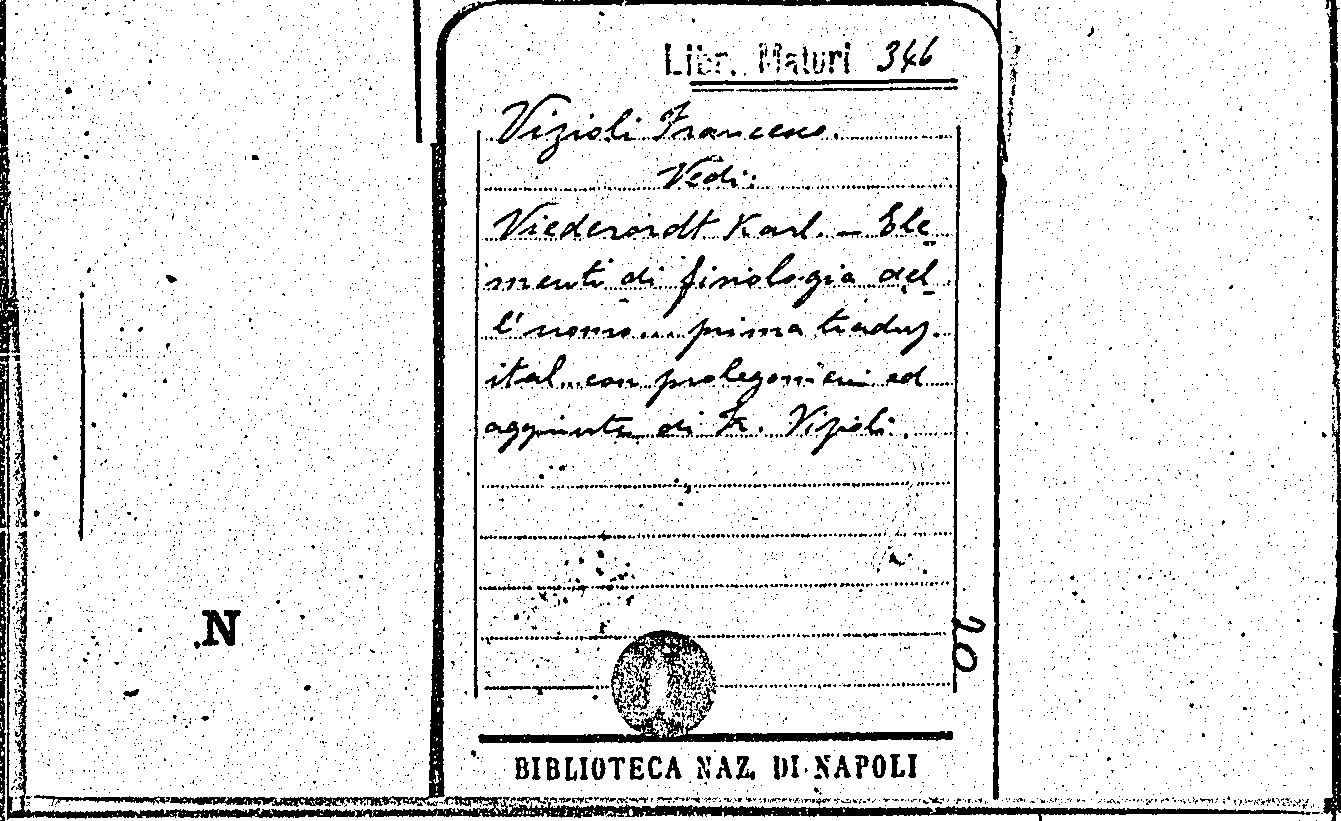 Libr. Maturi 346
Vizioli Francesco.
Vedi:
Viederordt Karl. – Ele
menti di fisiologia del
l'uomo... prima traduz.
ital. con prolegomeni ed
aggiunte di Fr. Vizioli.
20
N
BIBLIOTECA NAZ. DI NAPOLI